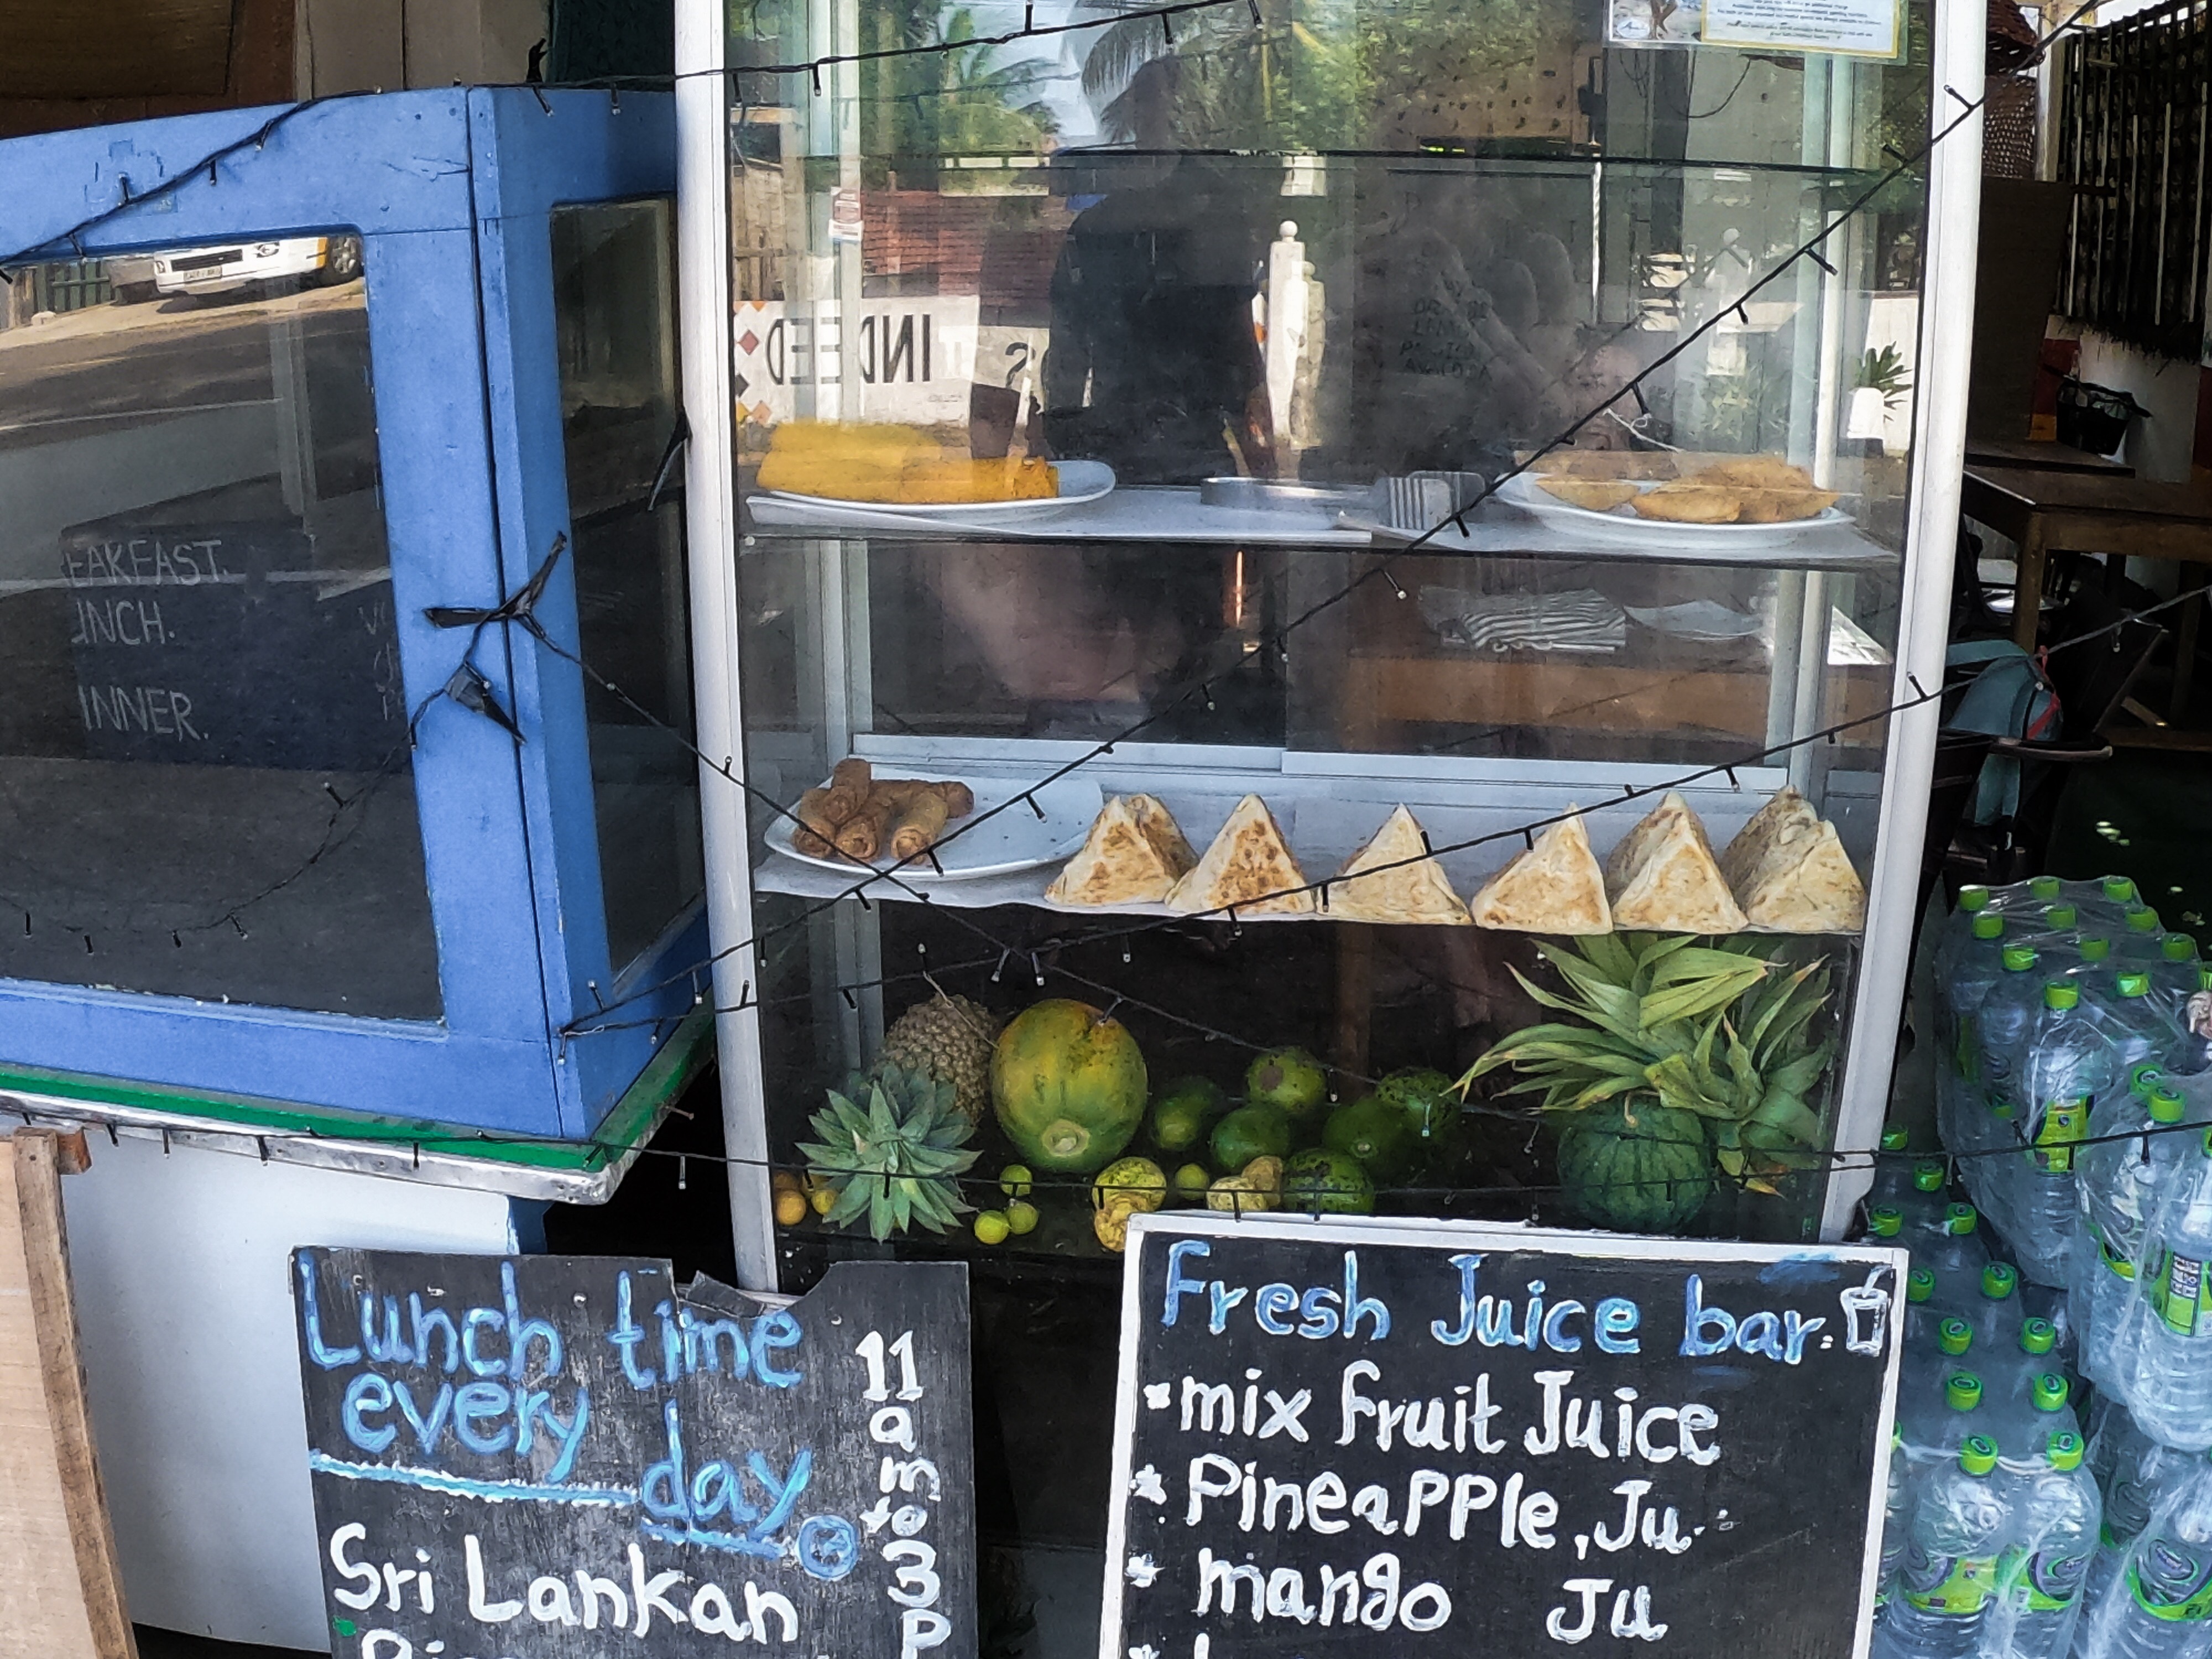 INDEED
EAKFAST.
INCH.
INNER.
Lunch time
every
day
11
a
m
to
3
P
Sri Lankan
Fresh Juice bar
*mix fruit Juice
* Pineapple, Ju
* mango Ju